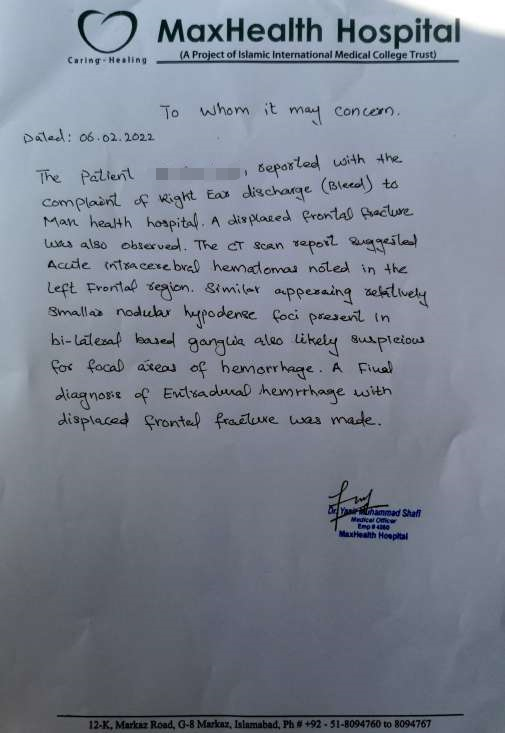 MaxHealth Hospital
Caring - Healing
(A Project of Islamic International Medical College Trust)
To whom it may concern.
Dated: 06.02.2022
The Patient , reported with the
complaint of Right Ear discharge (Bleed) to
Max health hospital. A displaced frontal fracture
was also observed. The CT scan report suggested
Acute intracerebral hematomas noted in the
left Frontal region. Similar apperaing relatively
smaller nodular hypodense foci present in
bi-lateral based ganglia also likely suspicious
for focal areas of hemorrhage. A Final
diagnosis of Extradural hemrrhage with
displaced frontal fracture was made.
Dr. Yasir Muhammad Shafi
Medical Officer
Emp # 4260
MaxHealth Hospital
12-K, Markaz Road, G-8 Markaz, Islamabad, Ph # +92 - 51-8094760 to 8094767